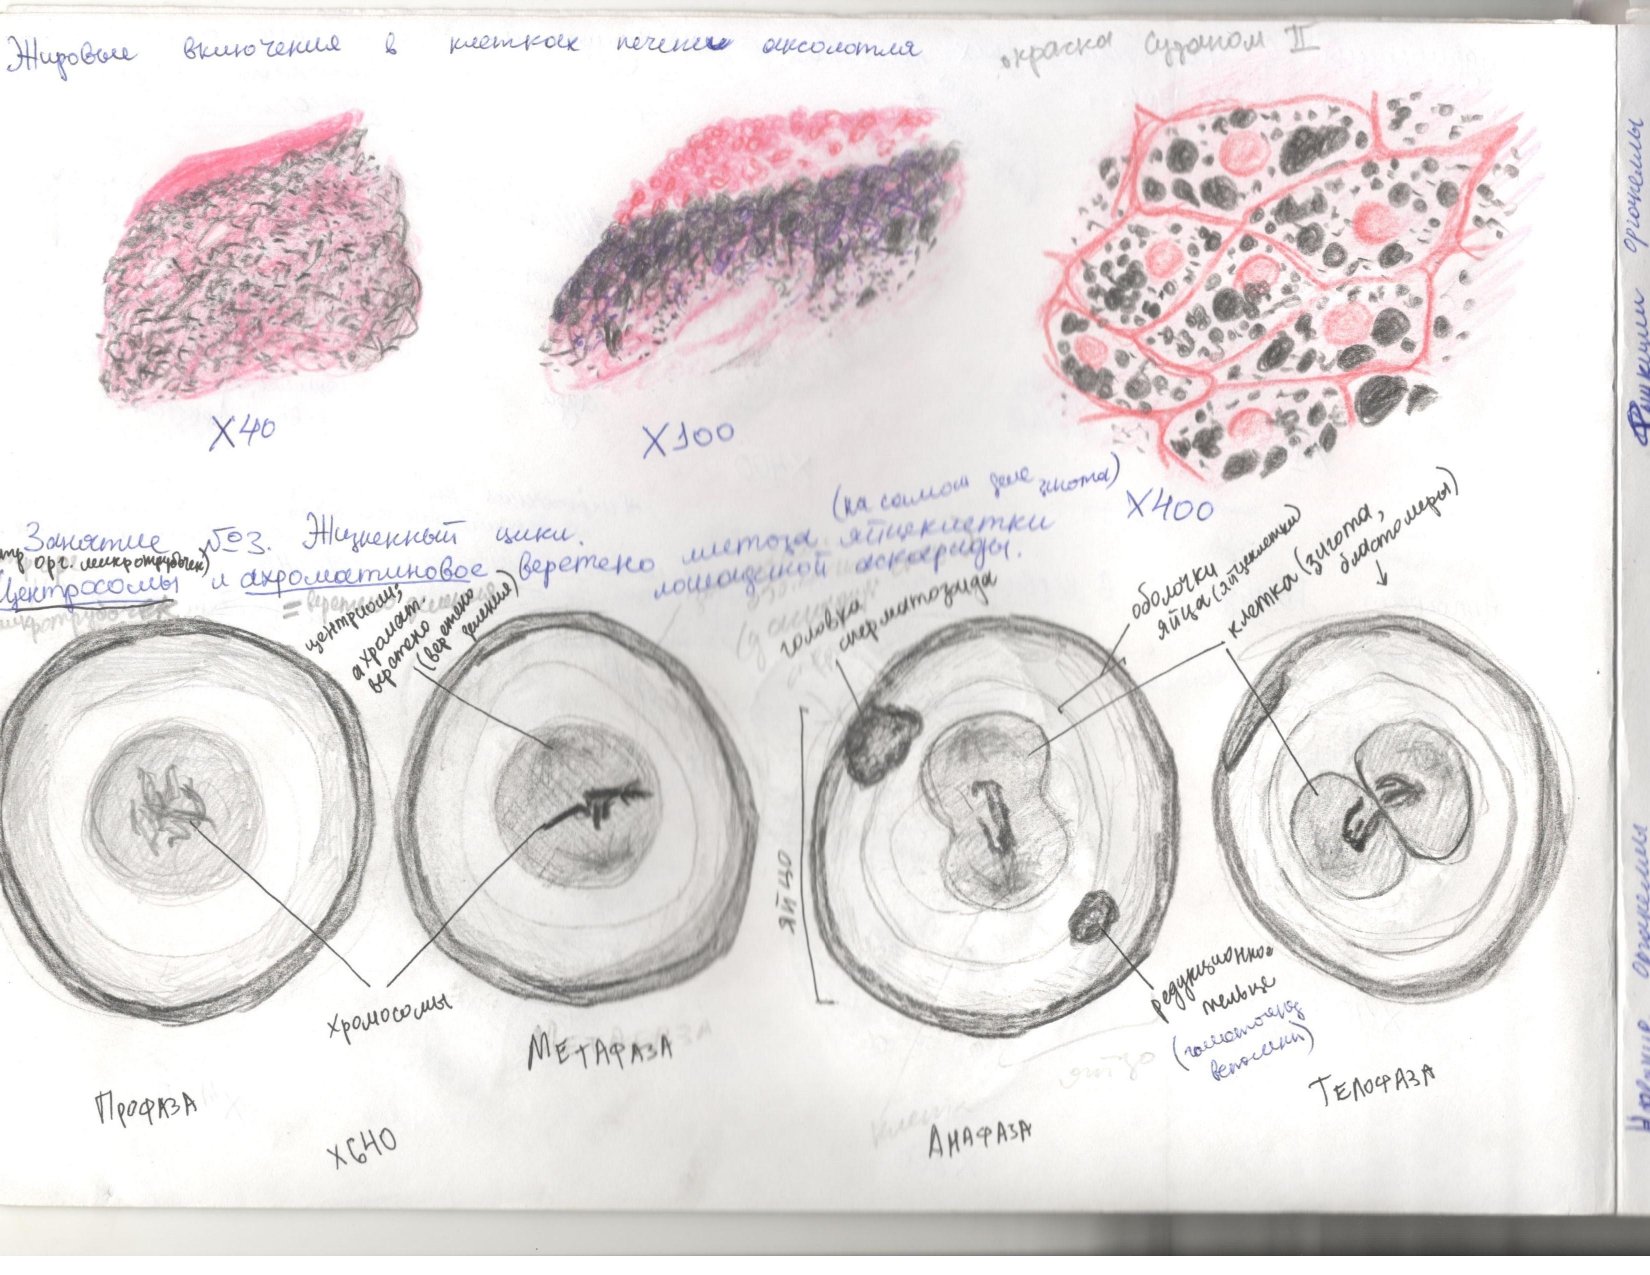 Жировые включения в клетках печени аксолотля
окраска Суданом III
X40
X100
X400
Занятие №3. Жизненный цикл.
орг. микротрубочек)
Центросомы и ахроматиновое веретено митоза яйцеклетки
(на самом деле зигота)
лошадиной аскариды.
= веретено деления
центриоли;
ахромат.
веретено
(веретено
деления)
головка
сперматозоида
оболочки
яйца (яйцеклетки)
клетка (зигота,
бластомеры)
яйцо
хромосомы
редукционное
тельце
Профаза
Метафаза
Анафаза
Телофаза
X640
Функции органеллы